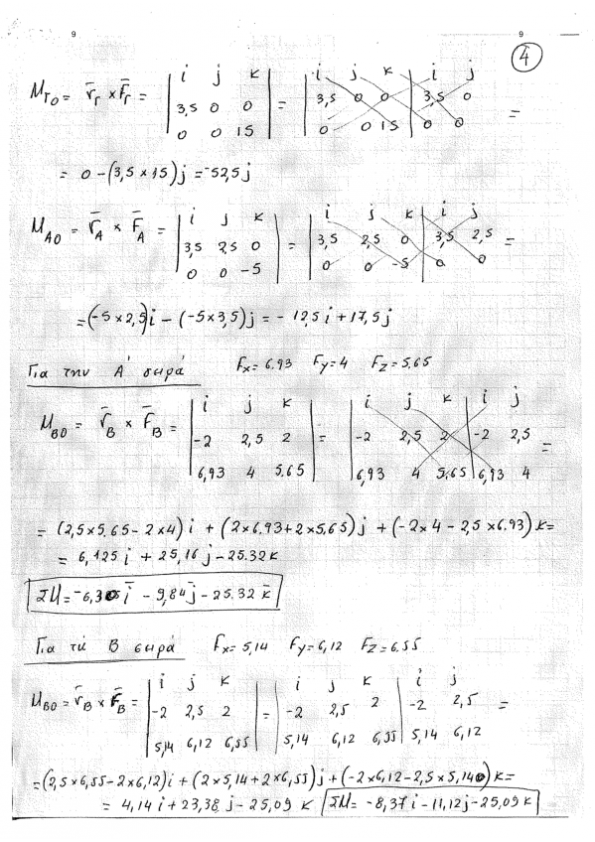 9 9
4
M_ΓO = r̄_Γ × F̄_Γ = | i j k ; 3,5 0 0 ; 0 0 15 | = | i j k ; 3,5 0 0 ; 0 0 15 | i j ; 3,5 0 ; 0 0 | =
= 0 - (3,5 × 15) j = -52,5 j
M_AO = r̄_A × F̄_A = | i j k ; 3,5 2,5 0 ; 0 0 -5 | = | i j k ; 3,5 2,5 0 ; 0 0 -5 | i j ; 3,5 2,5 ; 0 0 | =
= (-5 × 2,5) i - (-5 × 3,5) j = - 12,5 i + 17,5 j
Για την Α' σειρά Fx = 6.93 Fy = 4 Fz = 5.65
M_BO = r̄_B × F̄_B = | i j k ; -2 2,5 2 ; 6,93 4 5.65 | = | i j k ; -2 2,5 2 ; 6,93 4 5,65 | i j ; -2 2,5 ; 6,93 4 | =
= (2,5 × 5.65 - 2 × 4) i + (2 × 6.93 + 2 × 5,65) j + (-2 × 4 - 2,5 × 6.93) k =
= 6,125 i + 25,16 j - 25.32 k
ΣM = -6,375 ī - 9,84 j̄ - 25.32 k̄
Για τη Β σειρά Fx = 5,14 Fy = 6,12 Fz = 6,55
M_BO = r̄_B × F̄_B = | i j k ; -2 2,5 2 ; 5,14 6,12 6,55 | = | i j k ; -2 2,5 2 ; 5,14 6,12 6,55 | i j ; -2 2,5 ; 5,14 6,12 | =
= (2,5 × 6,55 - 2 × 6,12) i + (2 × 5,14 + 2 × 6,55) j + (-2 × 6,12 - 2,5 × 5,14) k =
= 4,14 i + 23,38 j - 25,09 k ΣM = -8,37 i - 11,12 j - 25,09 k